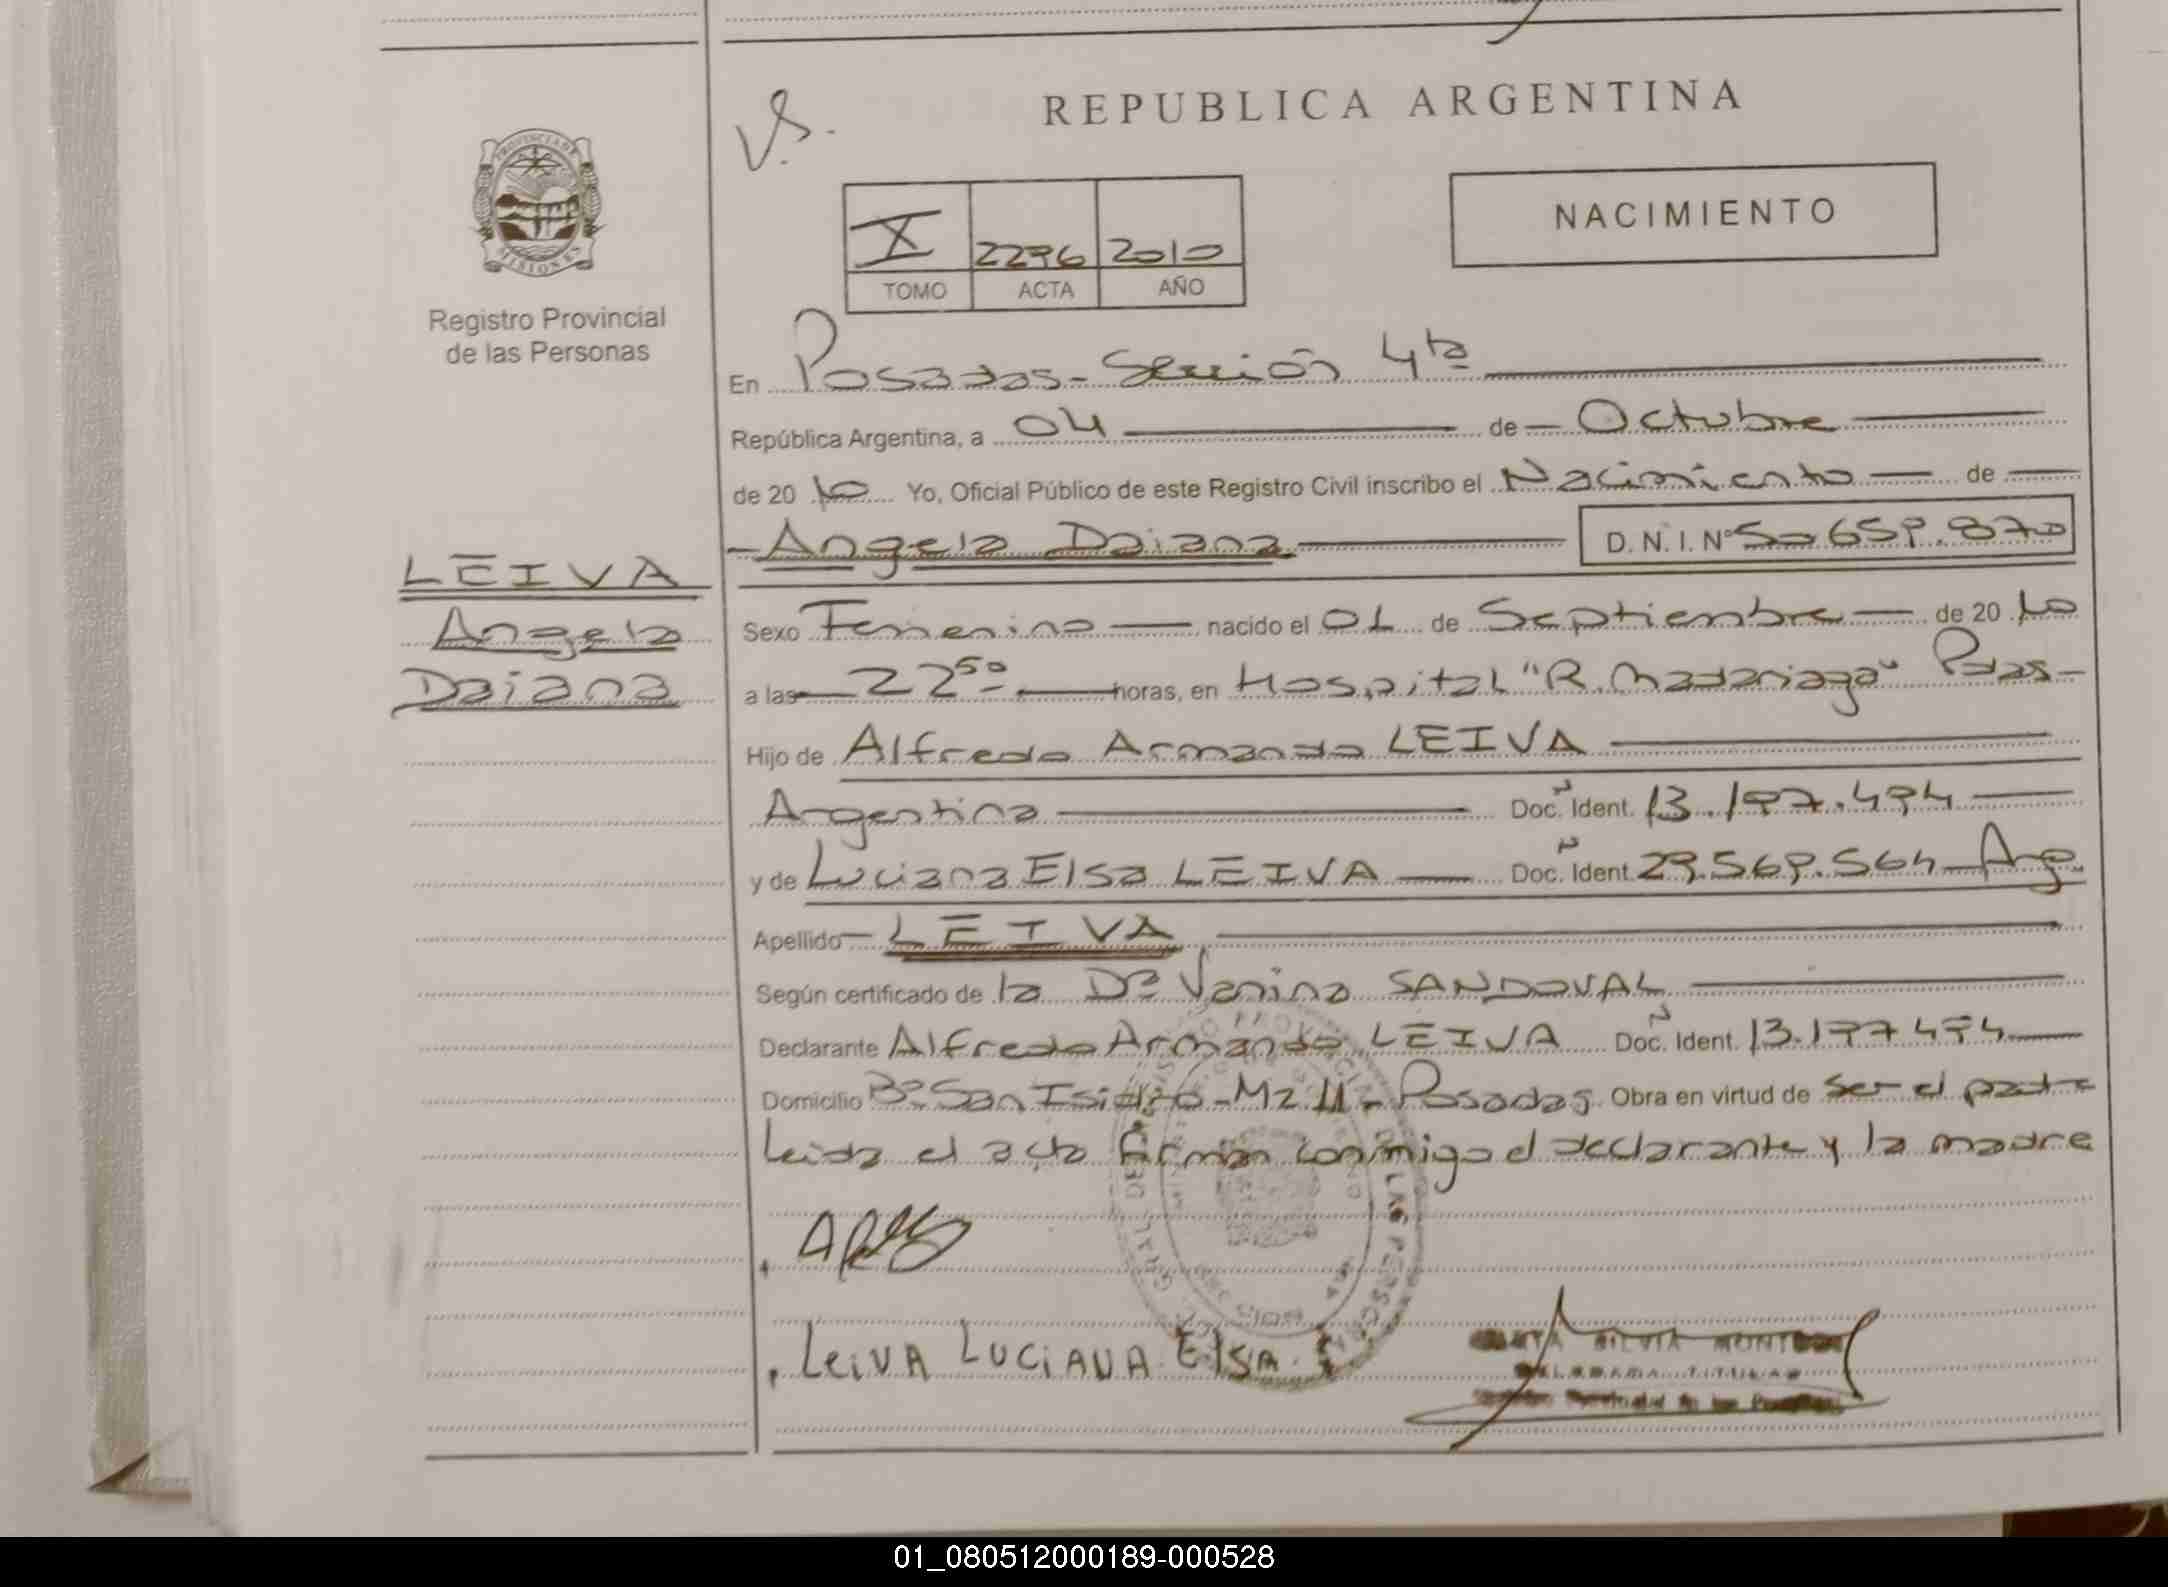 V.S.
REPUBLICA ARGENTINA
PROVINCIA DE
MISIONES
Registro Provincial
de las Personas
X 2296 2010
TOMO ACTA AÑO
NACIMIENTO
En Posadas - Sección 4ta
República Argentina, a 04 de Octubre
de 20 10 Yo, Oficial Público de este Registro Civil inscribo el Nacimiento de
Angela Daiana D. N. I. Nº 50 659.870
LEIVA
Angela
Daiana
Sexo Femenino nacido el 01 de Septiembre de 20 10
a las 22 50 horas, en Hospital "R. Madariaga" Pdas-
Hijo de Alfredo Armando LEIVA
Argentina Doc. Nº Ident. 13.197.494
y de Luciana Elsa LEIVA Doc. Nº Ident. 29.569.564 Arg.
Apellido LEIVA
Según certificado de la Dra Vanina SANDOVAL
Declarante Alfredo Armando LEIVA Doc. Nº Ident. 13.197 494
Domicilio Bº San Isidro - Mz 11 - Posadas Obra en virtud de ser el padre
Leida el acta firman conmigo el declarante y la madre
LEIVA LUCIANA Elsa
SILVIA
TITULAR
01_080512000189-000528